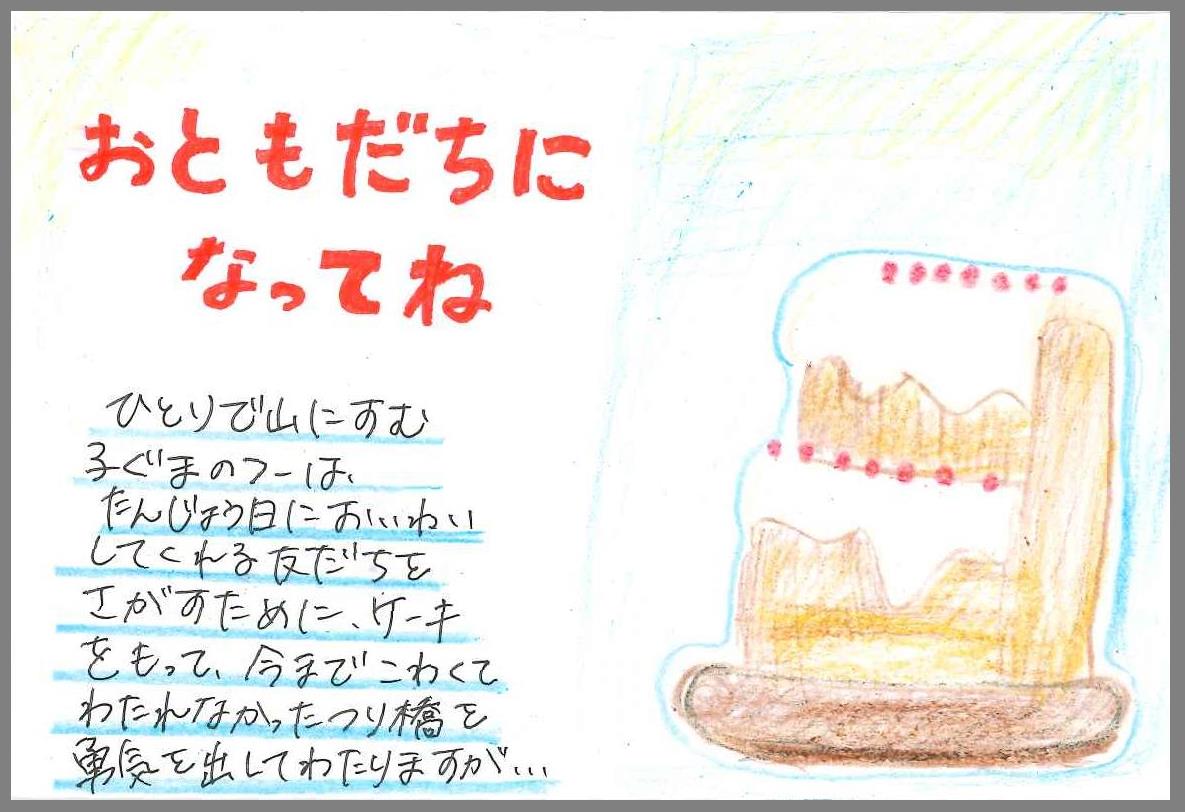 おともだちに
なってね
ひとりで山にすむ
子ぐまのフーは、
たんじょう日においわい
してくれる友だちを
さがすために、ケーキ
をもって、今までこわくて
わたれなかったつり橋を
勇気を出してわたりますが…